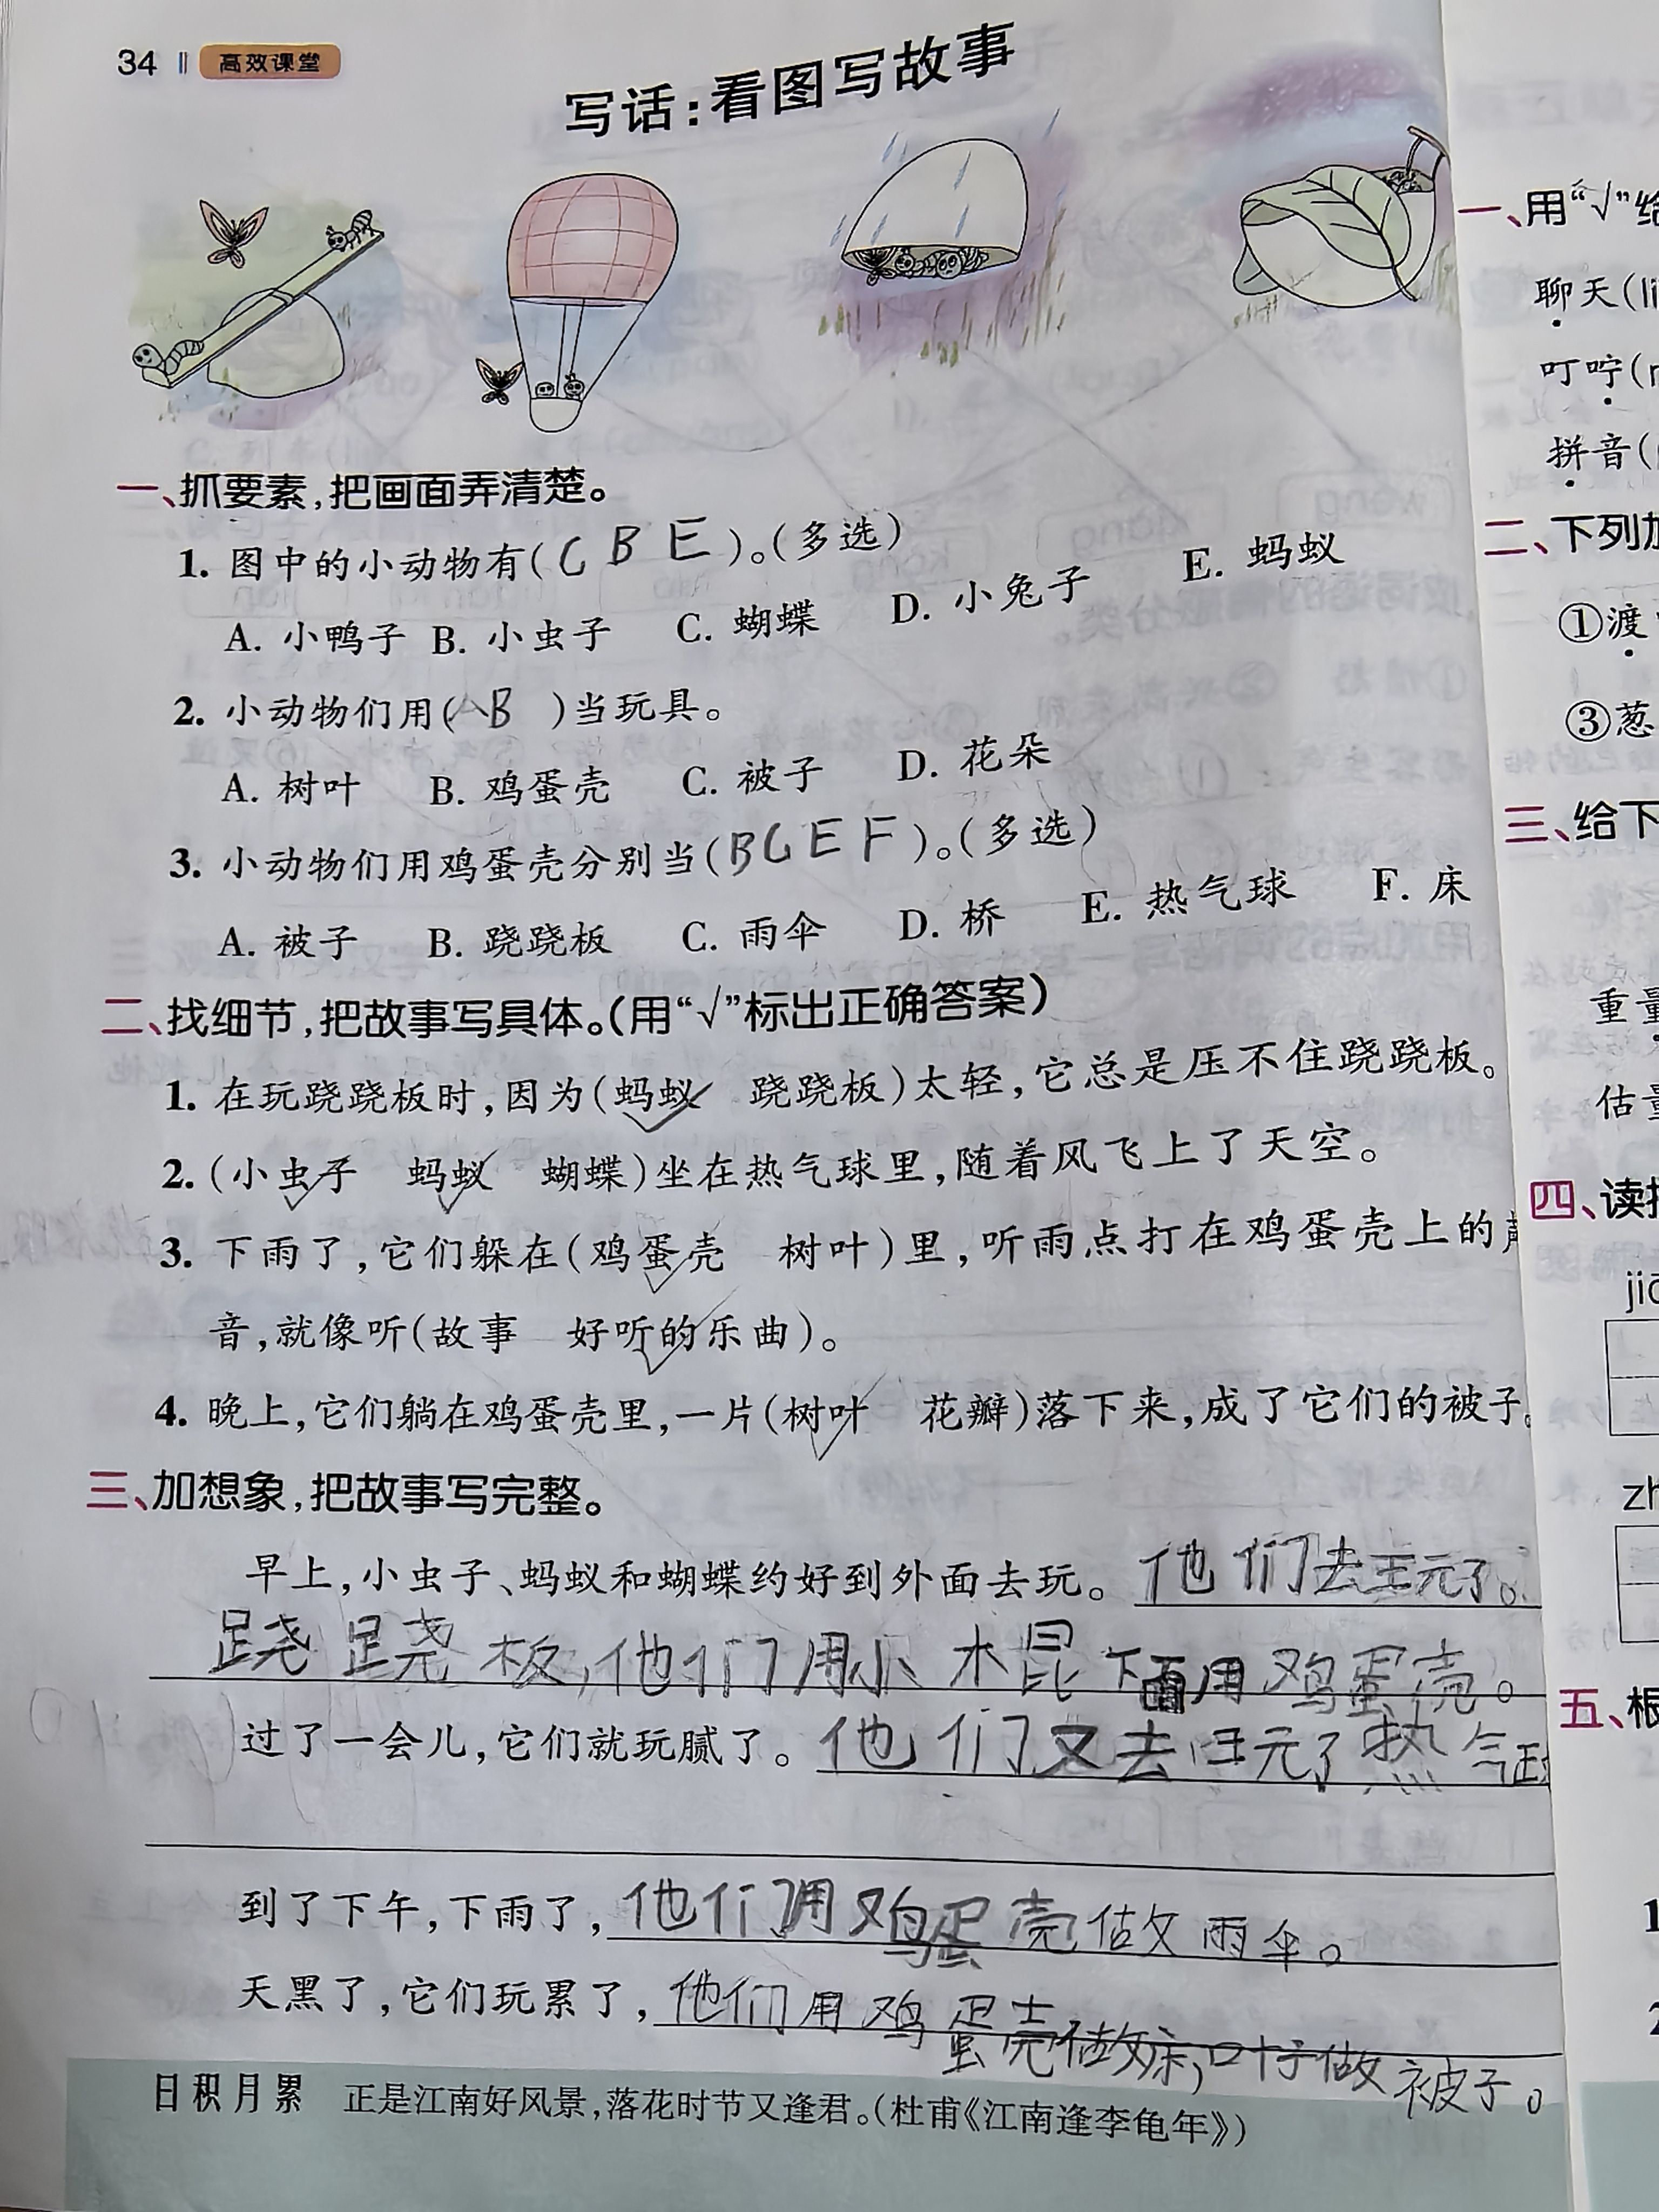 34 高效课堂
写话:看图写故事
一、抓要素,把画面弄清楚。
1. 图中的小动物有(C B E)。(多选)
A. 小鸭子 B. 小虫子 C. 蝴蝶 D. 小兔子 E. 蚂蚁
2. 小动物们用(B)当玩具。
A. 树叶 B. 鸡蛋壳 C. 被子 D. 花朵
3. 小动物们用鸡蛋壳分别当(B C E F)。(多选)
A. 被子 B. 跷跷板 C. 雨伞 D. 桥 E. 热气球 F. 床
二、找细节,把故事写具体。(用“√”标出正确答案)
1. 在玩跷跷板时,因为(蚂蚁√ 跷跷板)太轻,它总是压不住跷跷板。
2. (小虫子√ 蚂蚁√ 蝴蝶)坐在热气球里,随着风飞上了天空。
3. 下雨了,它们躲在(鸡蛋壳√ 树叶)里,听雨点打在鸡蛋壳上的声
音,就像听(故事 好听的乐曲√)。
4. 晚上,它们躺在鸡蛋壳里,一片(树叶√ 花瓣)落下来,成了它们的被子。
三、加想象,把故事写完整。
早上,小虫子、蚂蚁和蝴蝶约好到外面去玩。他们去玩了。
跷跷板,他们用小木棍下面用鸡蛋壳。
过了一会儿,它们就玩腻了。他们又去玩了热气球
到了下午,下雨了,他们用鸡蛋壳做雨伞。
天黑了,它们玩累了,他们用鸡蛋壳做床,叶子做被子。
日积月累 正是江南好风景,落花时节又逢君。(杜甫《江南逢李龟年》)
一、用“√”给
聊天(li
叮咛(
拼音(
二、下列加
①渡
③葱
三、给下
重量
估量
四、读拼
jiā
zh
五、根
1
2